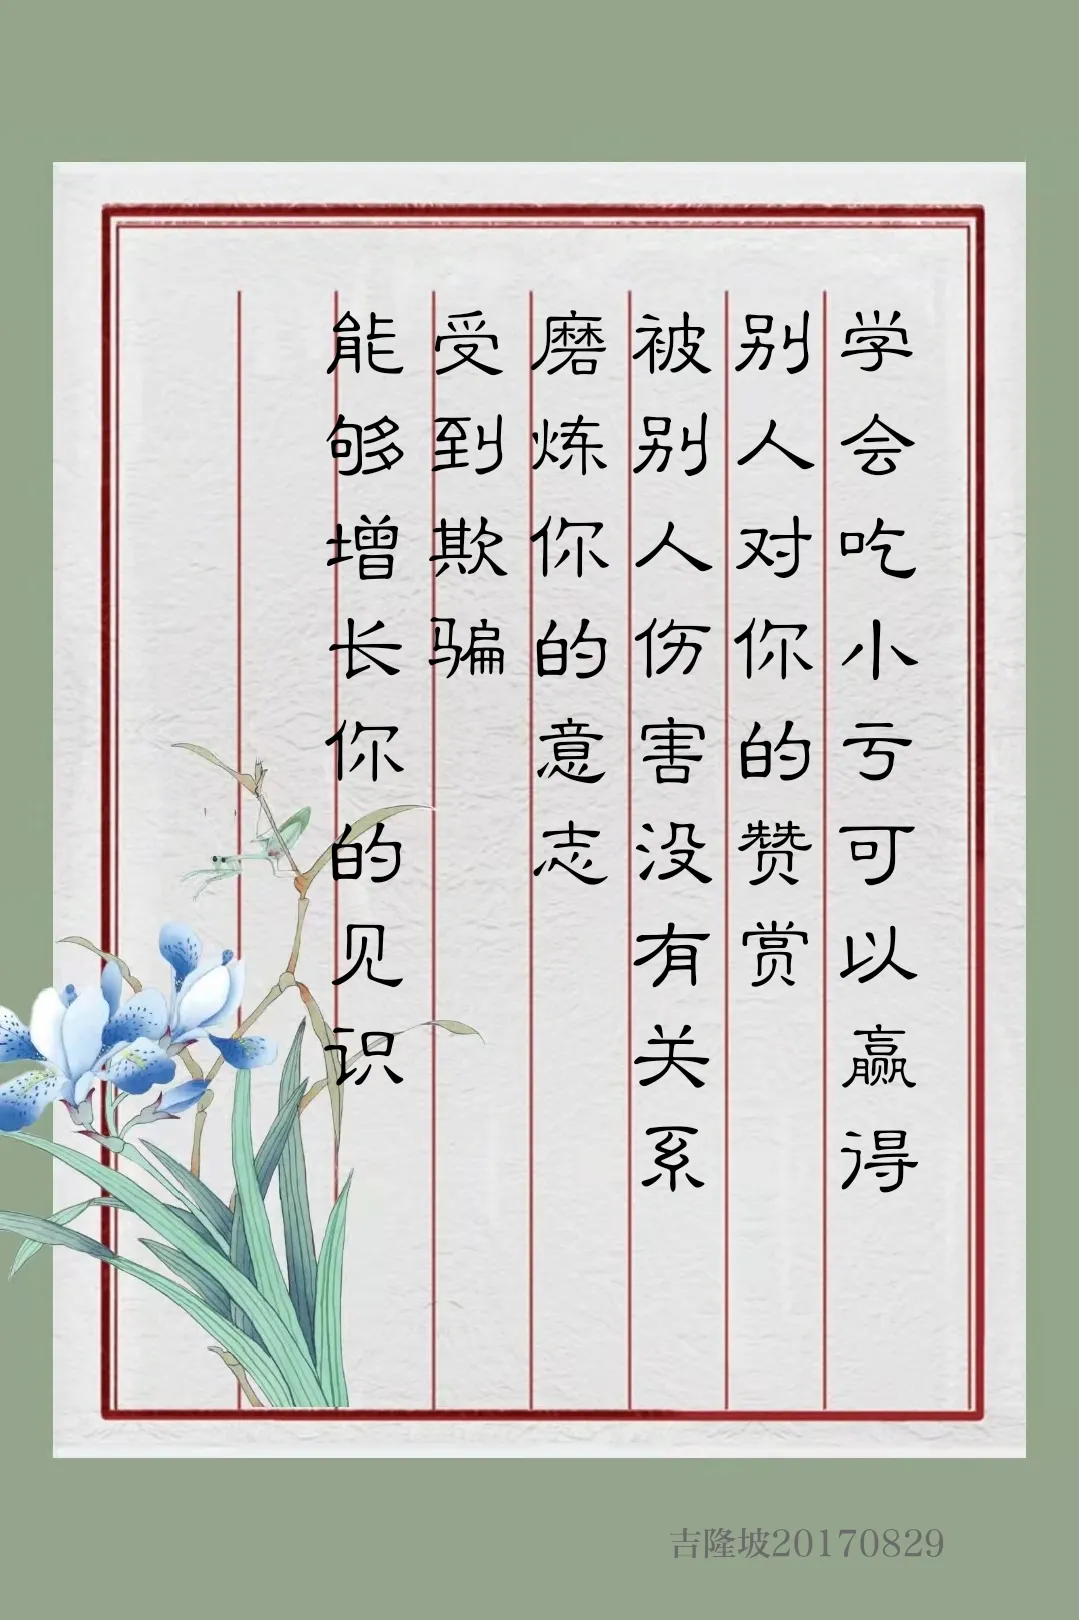 学会吃小亏可以赢得
别人对你的赞赏
被别人伤害没有关系
磨炼你的意志
受到欺骗
能够增长你的见识
吉隆坡20170829